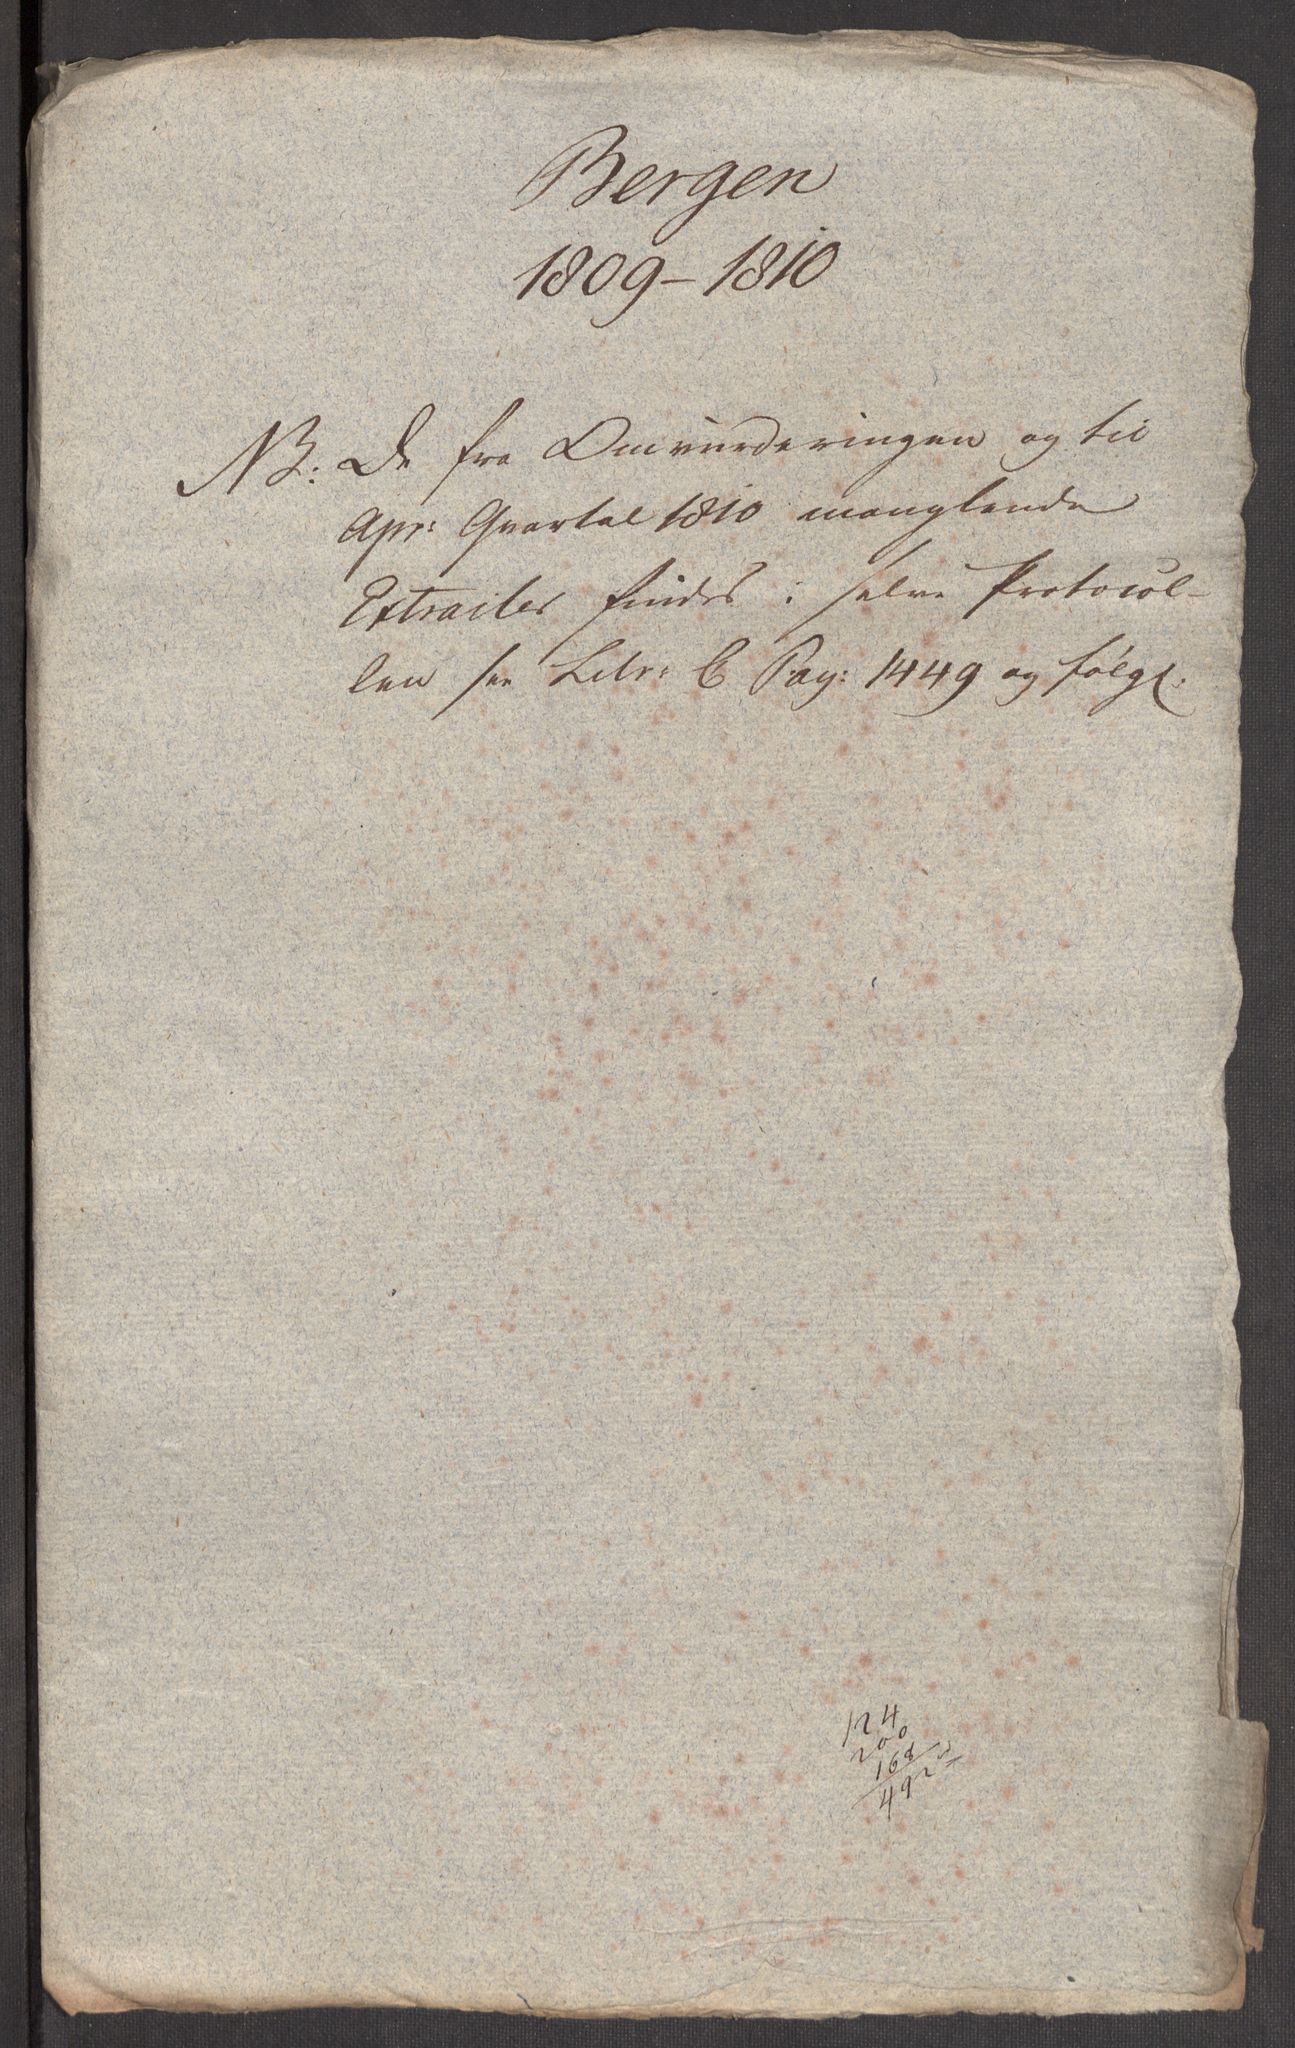 Bergen
1809 – 1810
NB: De fra Omvurderingen og til
Apr: Qvartal 1810 manglende
Extracter findes i selve Protocol-
len see Litr: C Pag: 1449 og følg.
124
200
168
492